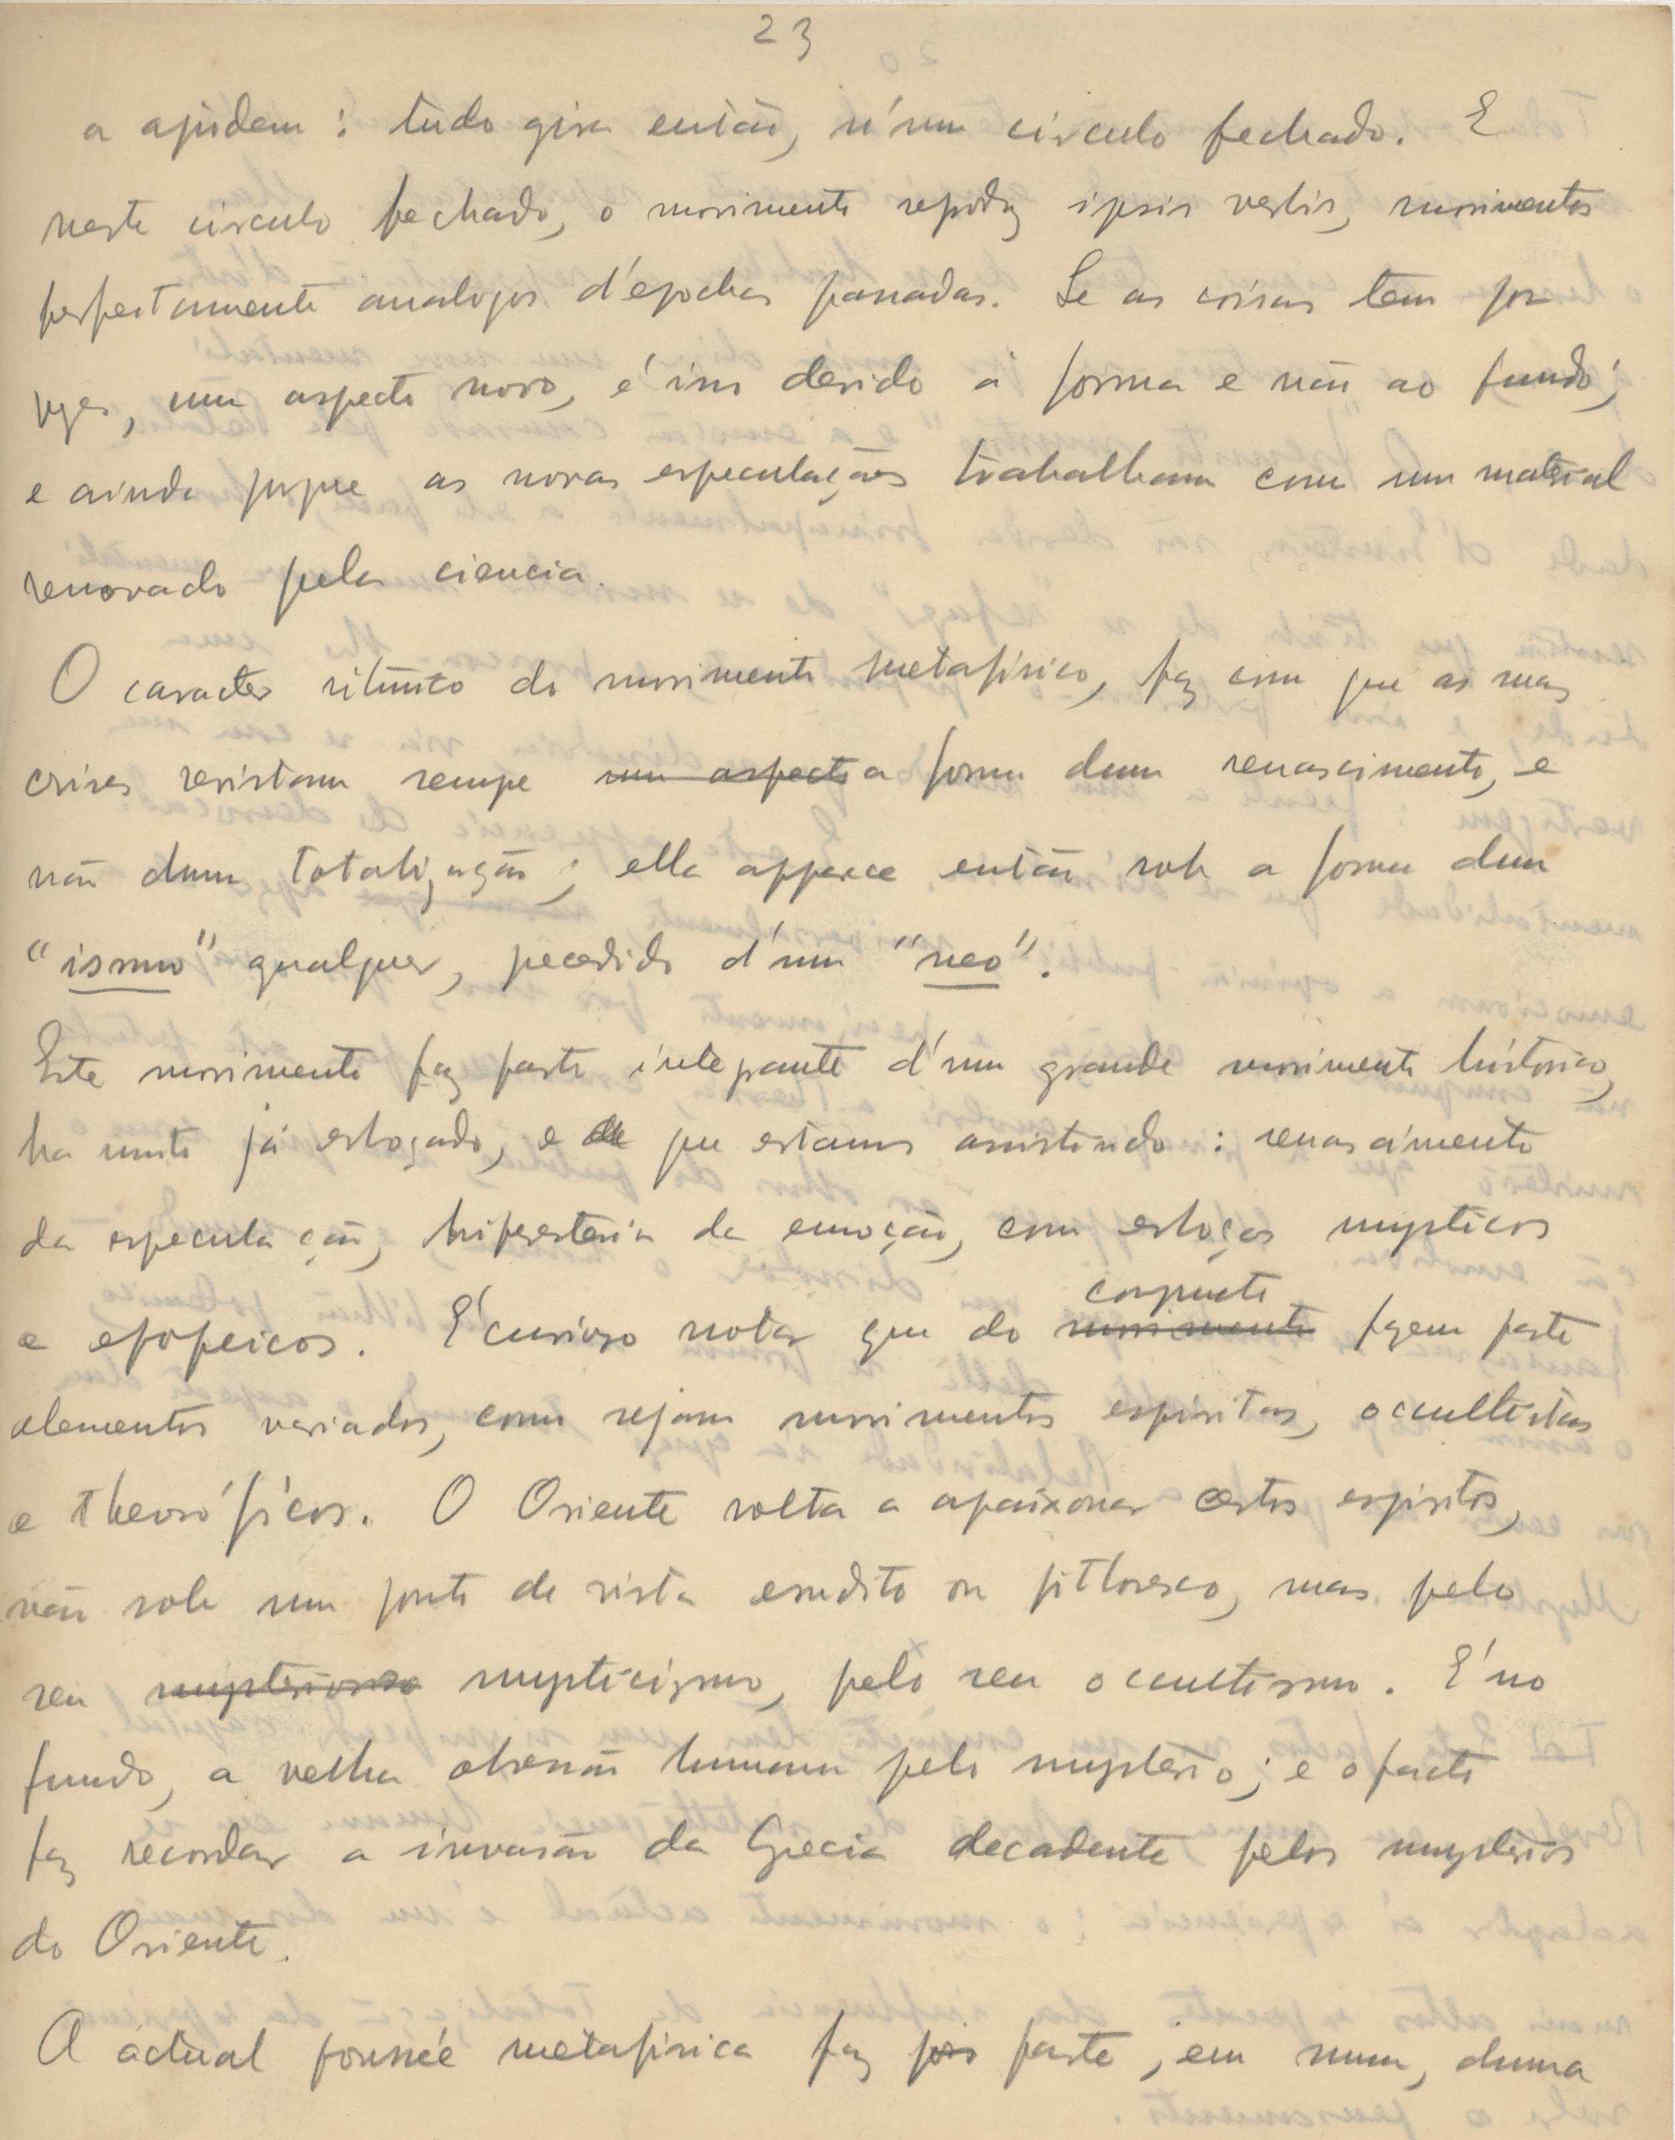 23
a ajudam : tudo gira então, n'um circulo fechado. E
neste circulo fechado, o movimento repoduz ipsis verbis, movimentos
perfeitamente analogos d'épochas passadas. Se as coisas tem por
vezes, um aspecto novo, é isso devido á forma e não ao fundo;
e ainda porque as novas especulações trabalham com um material
renovado pela ciencia.
O caracter do movimento metafísico, faz com que as suas
crises revistam sempe um aspecto a forma dum renascimento, e
não duma totalização ; ella apparece então sob a forma dum
"ismo" qualquer, pecedido d'um "neo".
Este movimento faz parte integrante d'um grande movimento histórico,
ha muito já esboçado, e de que estamos assistindo : renascimento
da especulação, hiperesteria da emoção, com esboços mysticos
e epopeicos. É curioso notar que do movimento fazem parte
conjuncto
elementos variados, como sejam movimentos espiritas, occultistas
e theosóficos. O Oriente volta a apaixonar certos espiritos,
não sob um ponto de vista erudito ou pittoresco, mas pelo
seu mysterioso mysticismo, pelo seu occultismo. É no
fundo, a velha obsessão humana pelo mysterio; e o facto
faz recordar a invasão da Grecia decadente pelos mysterios
do Oriente.
A actual fournée metafisica faz pois parte, em suma, duma